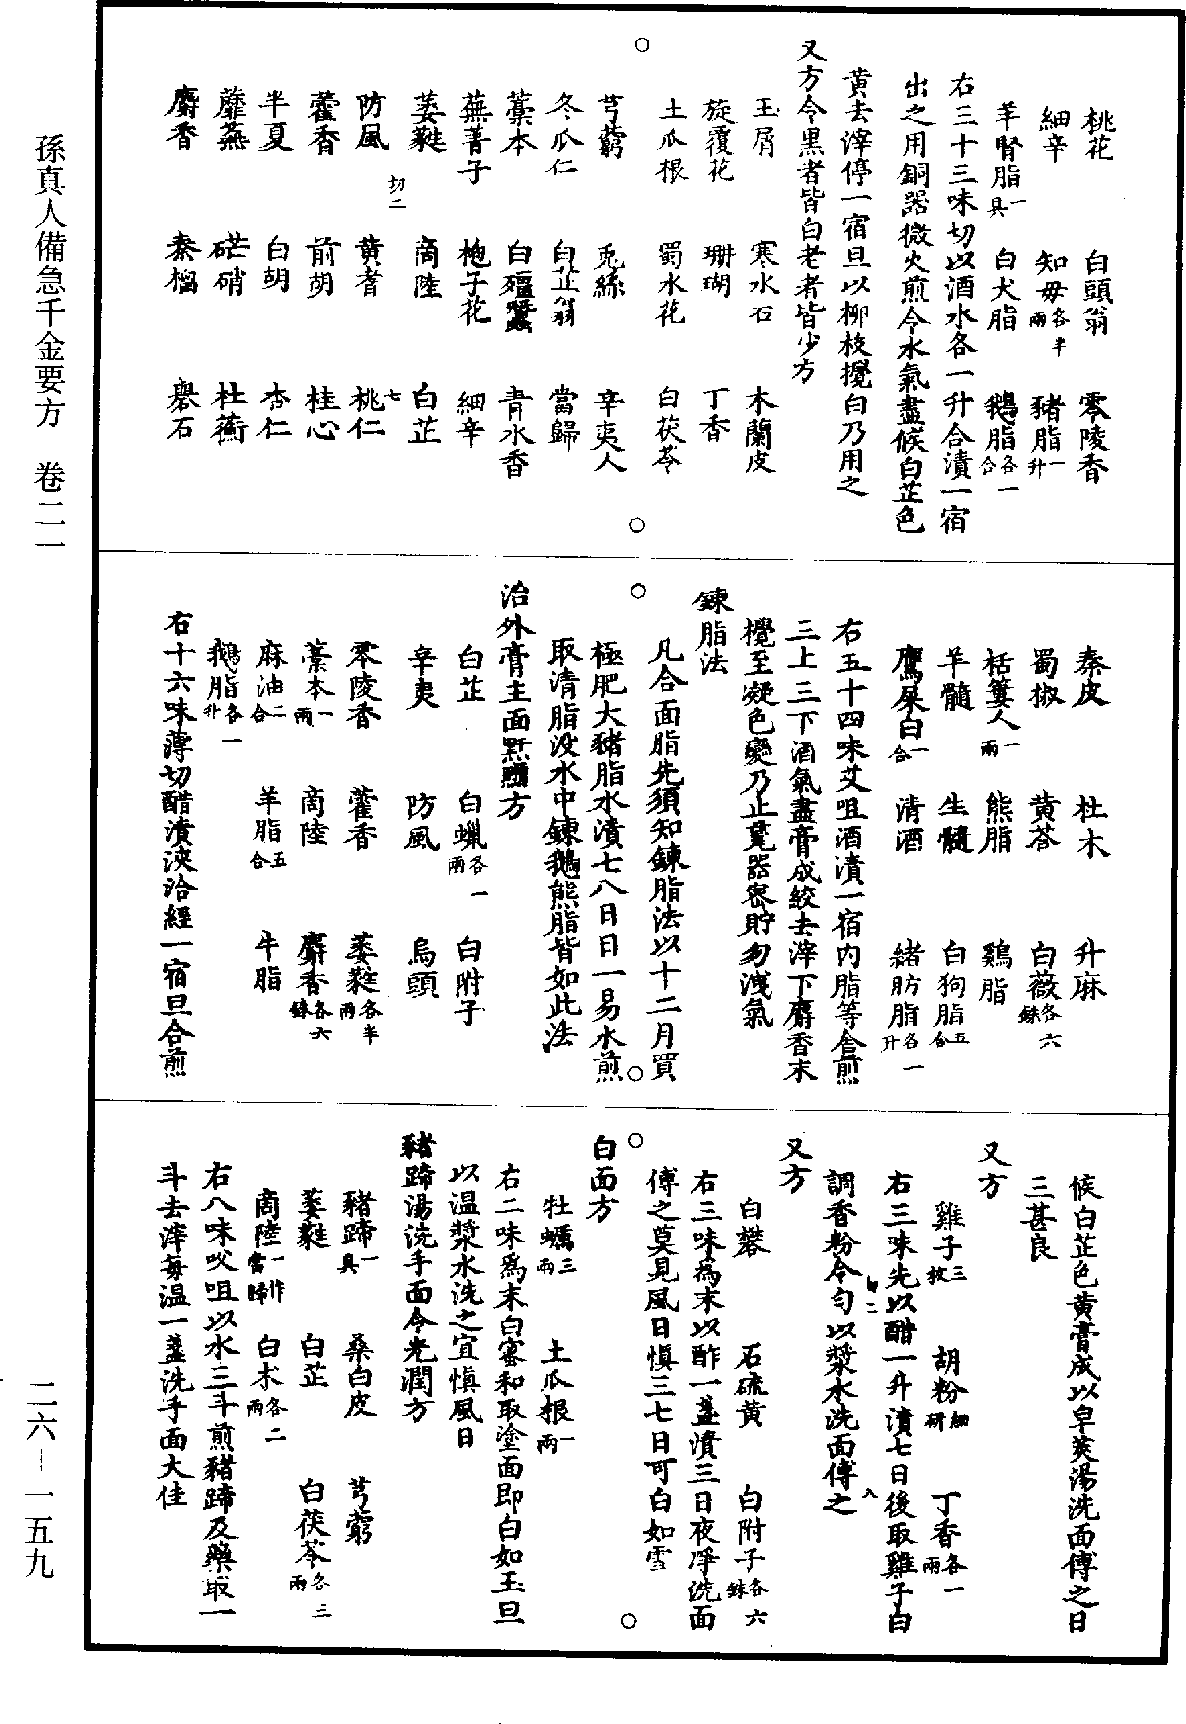 桃花　白頭翁　零陵香
細辛　知母各半兩　豬脂一升
羊腎脂一具　白犬脂　鵝脂各一合
右三十三味切以酒水各一升合漬一宿
出之用銅器微火煎令水氣盡候白芷色
黃去滓停一宿旦以柳枝攪白乃用之
又方令黑者皆白老者皆少方
玉屑　寒水石　木蘭皮
旋覆花　珊瑚　丁香
土瓜根　蜀水花　白茯苓
芎藭　兎絲　辛夷人
冬瓜仁　白芷翁　當歸
藁本　白殭蠶　青水香
蕪菁子　梔子花　細辛
萎蕤　商陸　白芷
切二　七
防風　黃耆　桃仁
藿香　前胡　桂心
半夏　白胡　杏仁
蘼蕪　芒硝　杜蘅
麝香　秦榴　礜石
秦皮　杜木　升麻
蜀椒　黃芩　白薇各六銖
栝蔞人一兩　熊脂　鷄脂
羊髓　生髓　白狗脂五合
鷹屎白一合　清酒　緒肪脂各一升
右五十四味㕮咀酒漬一宿内脂等合煎
三上三下酒氣盡膏成絞去滓下麝香末
攪至凝色變乃止甆器密貯勿洩氣
鍊脂法
凡合面脂先須知鍊脂法以十二月買
極肥大豬脂水漬七八日日一易水煎
取清脂没水中鍊鵝熊脂皆如此法
治外膏主面䵟方
白芷　白蠟各一兩　白附子
辛夷　防風　烏頭
零陵香　藿香　萎蕤各半兩
藁本一兩　商陸　麝香各六銖
麻油二合　羊脂五合　牛脂
鵝脂各一升
右十六味薄切醋漬浹洽經一宿旦合煎
候白芷色黃膏成以皁莢湯洗面傅之日
三甚良
又方
雞子三枚　胡粉細研　丁香各一兩
右三味先以醋一升漬七日後取雞子白
調香粉令匀以漿水洗面傅之
又方
白礬　石硫黃　白附子各六銖
右三味爲末以酢一盞漬三日夜凈洗面
傅之莫見風日愼三七日可白如雪
白面方
牡蠣三兩　土瓜根一兩
右二味爲末白蜜和取塗面即白如玉旦
以温漿水洗之宜愼風日
豬蹄湯洗手面令光潤方
豬蹄一具　桑白皮　芎藭
萎蕤　白芷　白茯苓各三兩
商陸一作當歸　白朮各二兩
右八味㕮咀以水三斗煎豬蹄及藥取一
斗去滓每温一盞洗手面大佳
孫真人備急千金要方　卷二一
二六－一五九